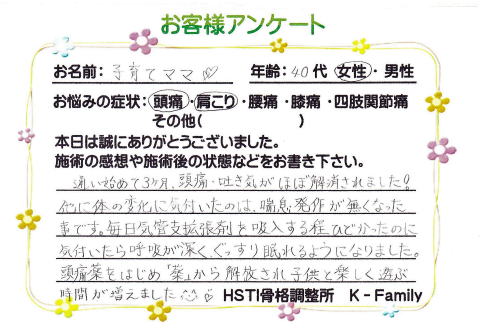 お客様アンケート
お名前: 子育てママ♡ 年齢: 40代 女性・男性
お悩みの症状: 頭痛・肩こり・腰痛・膝痛・四肢関節痛
その他( )
本日は誠にありがとうございました。
施術の感想や施術後の状態などをお書き下さい。
通い始めて3ヶ月、頭痛・吐き気がほぼ解消されました!
他に体の変化に気付いたのは、喘息発作が無くなった
事です。毎日気管支拡張剤を吸入する程ひどかったのに
気付いたら呼吸が深く、ぐっすり眠れるようになりました。
頭痛薬をはじめ"薬"から解放され子供と楽しく遊ぶ
時間が増えました HSTI骨格調整所 K-Family